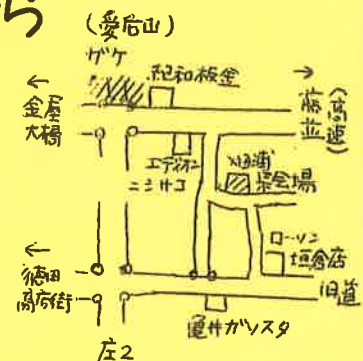 ら
(愛后山)
ガケ
紀和板金
←
金屋
大橋
→
藤並
(高速)
エディオン
ニシサコ
畑浦
祭会場
ローソン
垣倉店
←
徳田
商店街
旧道
亀井ガソスタ
庄2